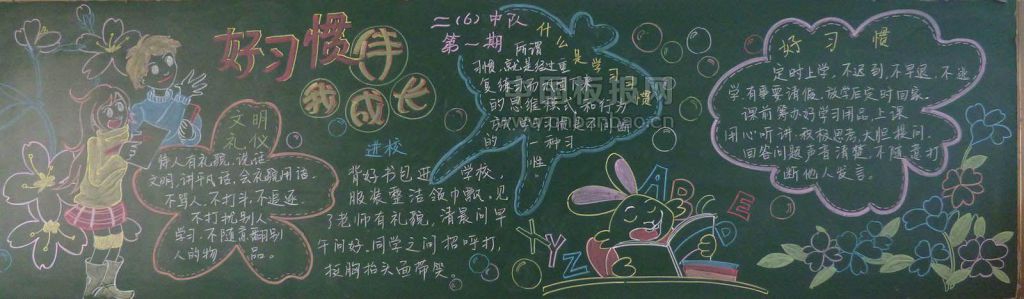 好习惯伴
我成长
二(6)中队
第一期
文明
礼仪
待人有礼貌,说话
文明,讲平凡话,会礼貌用语。
不骂人、不打斗、不追逐
不打扰别人
学习,不随意翻别
人的物品。
进校
背好书包进学校,
服装整洁领巾飘,见
了老师有礼貌,清晨问早
午问好,同学之间招呼打,
挺胸抬头面带笑。
什么是学习习惯
所谓
习惯,就是经过重
复练习而巩固下来
的思维模式和行为
的一种习
性。
好习惯
定时上学,不迟到,不早退,不逃
学有事要请假,放学后定时回家。
课前筹办好学习用品,上课
用心听讲,积极思考,大胆提问。
回答问题声音清楚,不随意打
断他人发言。
A B C D E
X Y Z